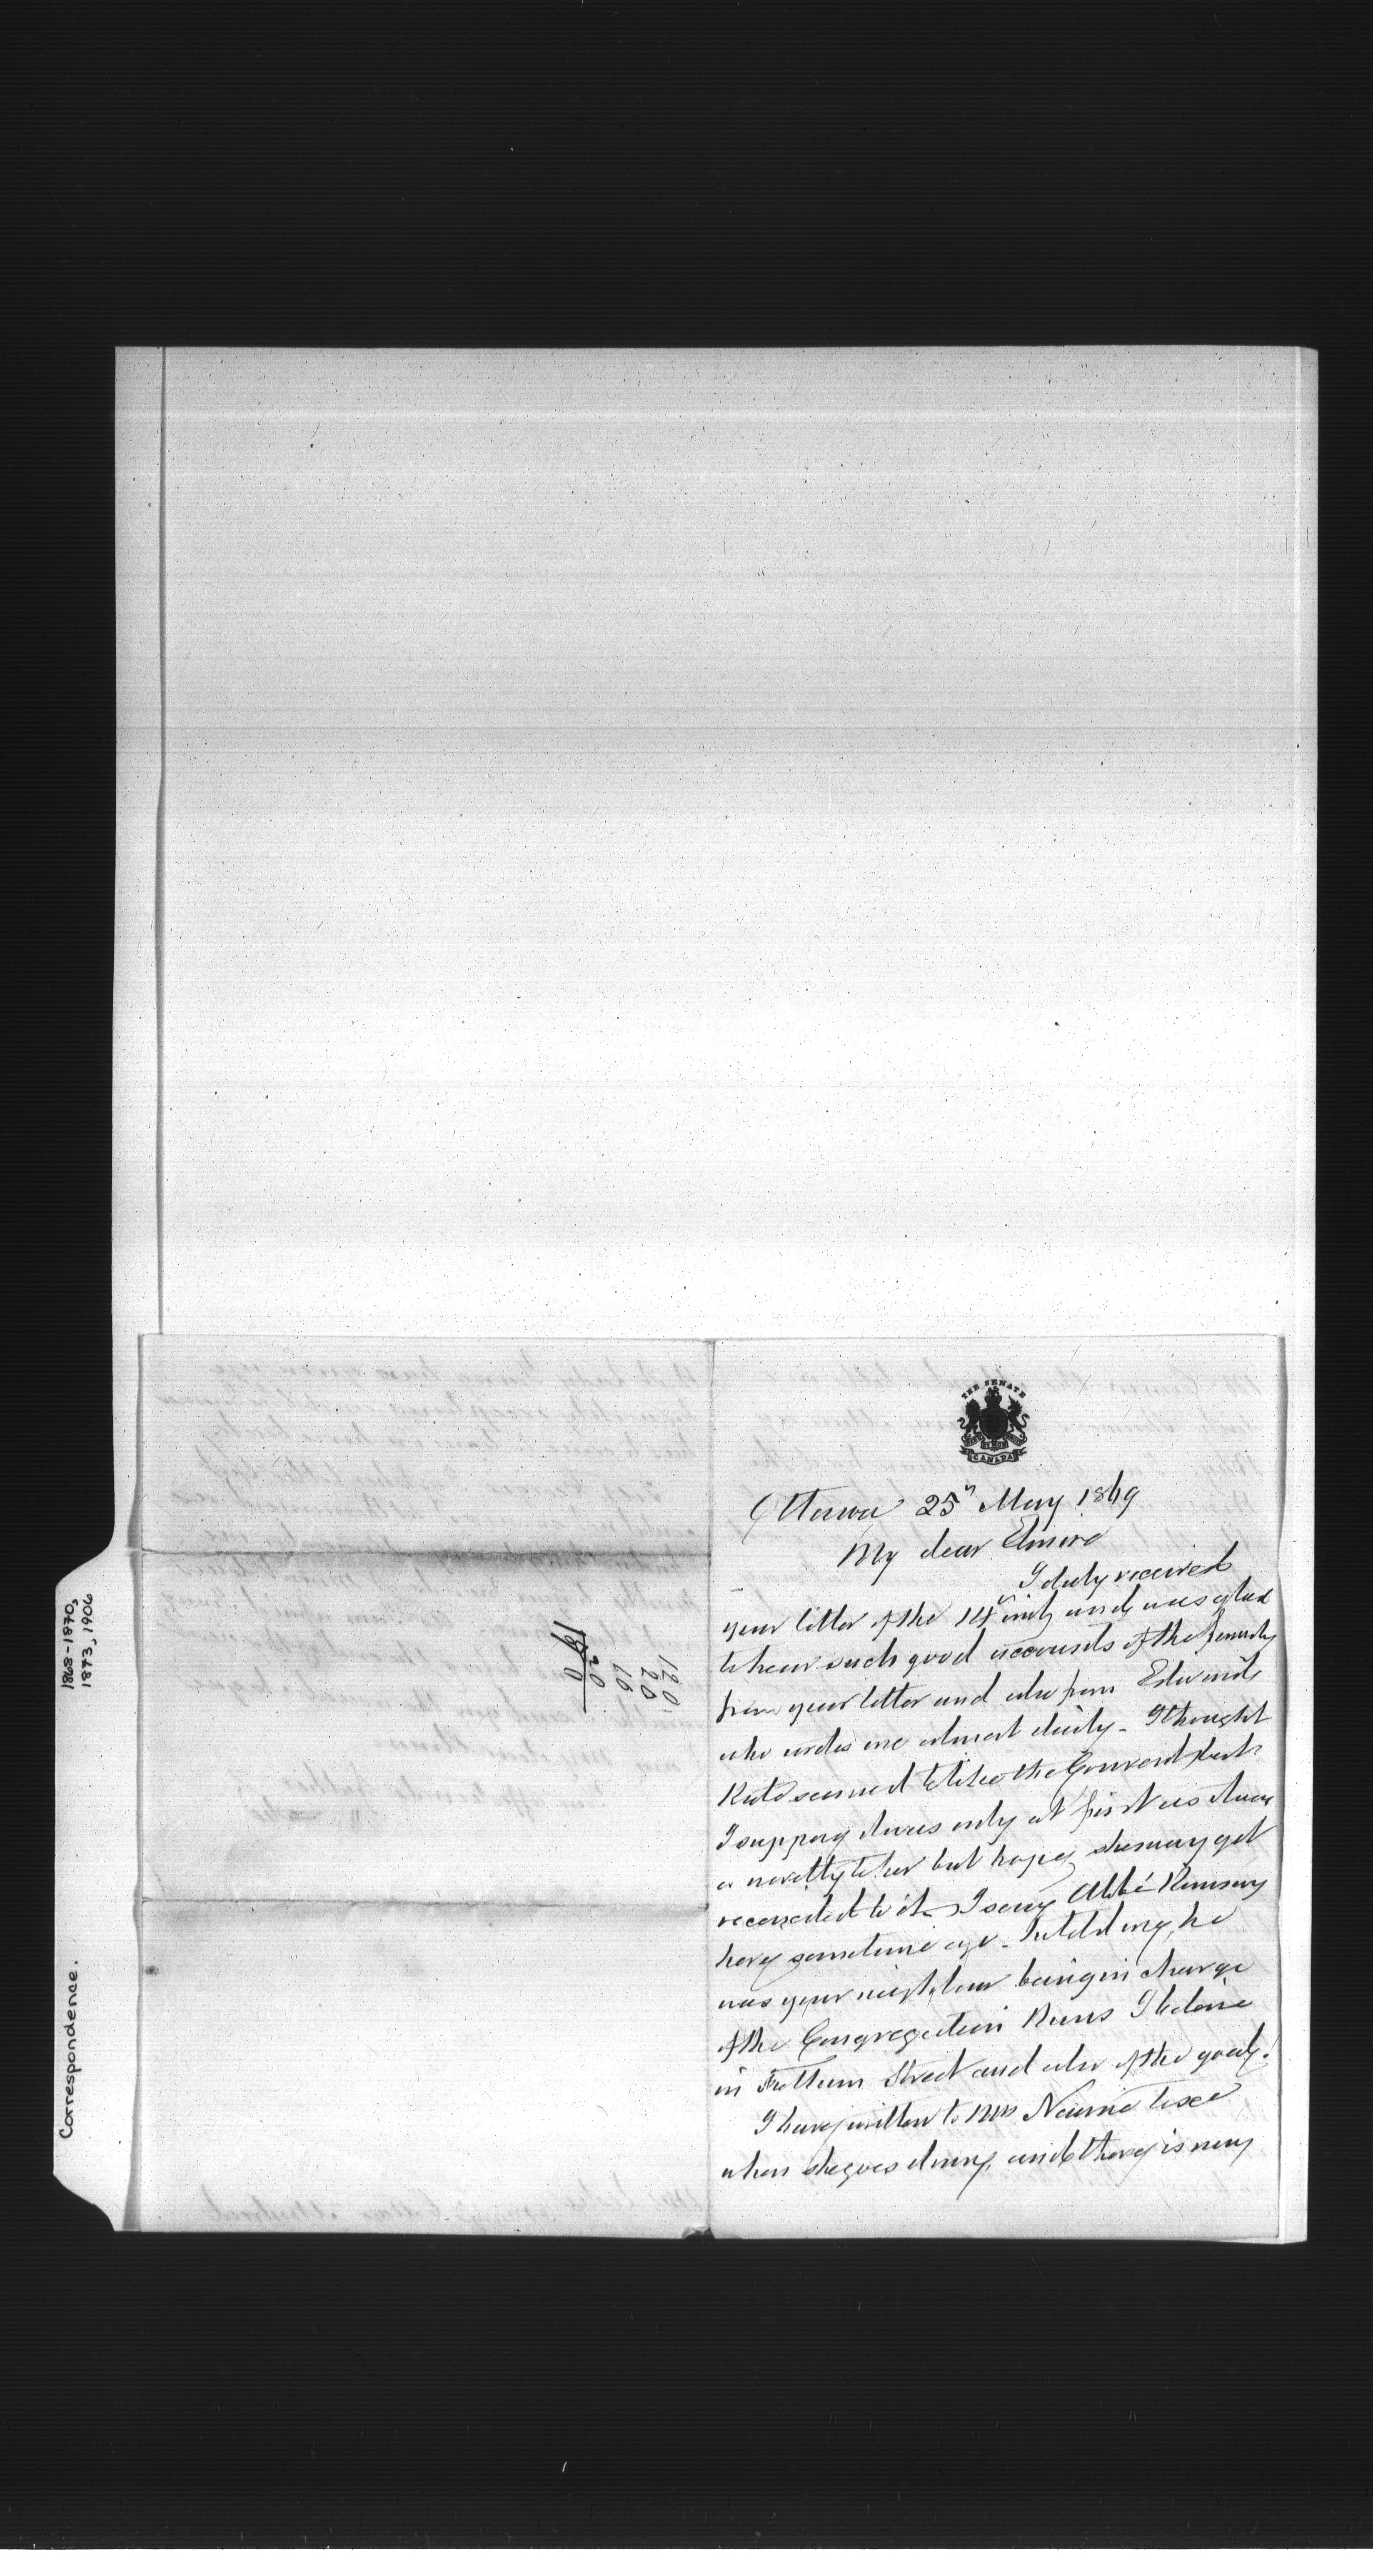 1868-1870,
1873, 1906
Correspondence.
120
20
16
THE SENATE
CANADA
Ottawa 25th May 1869
My dear Elmire
I duly received
your letter of the 14th inst and was glad
to hear such good accounts of the family
from your letter and also from Edwards
who writes me almost daily - I thought
Kate seemed to like the Convent but
I suppose it was only at first as it was
a novelty to her but hope she may get
reconciled to it - I saw Abbé Ramsay
here sometime ago - he told me, he
was your neighbour being in charge
of the Congregation Nuns I believe
in Fullum Street and also of the gaol.
I have written to Mrs Nairne to see
when she goes down, and there is